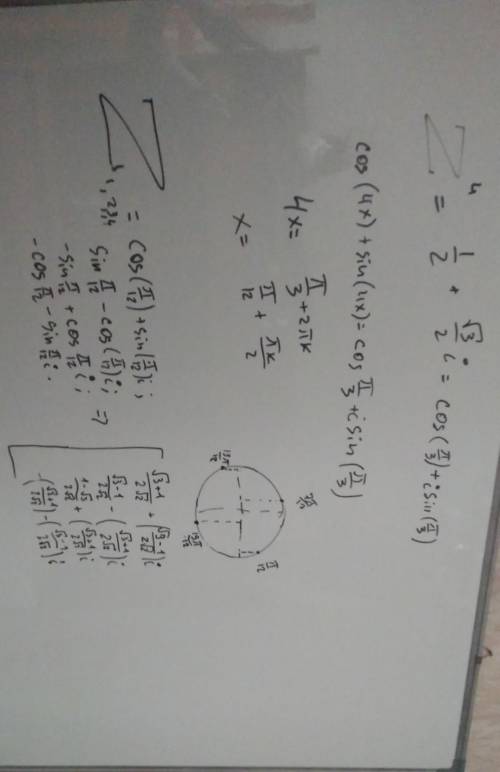 Z⁴ = 1/2 + √3/2 i = cos(π/3) + i sin(π/3)
cos(4x) + sin(4x) = cos π/3 + i sin(π/3)
4x = π/3 + 2πk
x = π/12 + πk/2
π/12
Z₁,₂,₃,₄ = cos(π/12) + sin(π/12)i;
sin π/12 − cos(π/12)i; ⇒
−sin π/12 + cos π/12 i;
−cos π/12 − sin π/12 i.
√3+1/2√2 + (√3−1/2√2)i
√3−1/2√2 − (√3+1/2√2)i
1−√3/2√2 + (√3+1/2√2)i
−(√3+1/2√2) − (√3−1/2√2)i